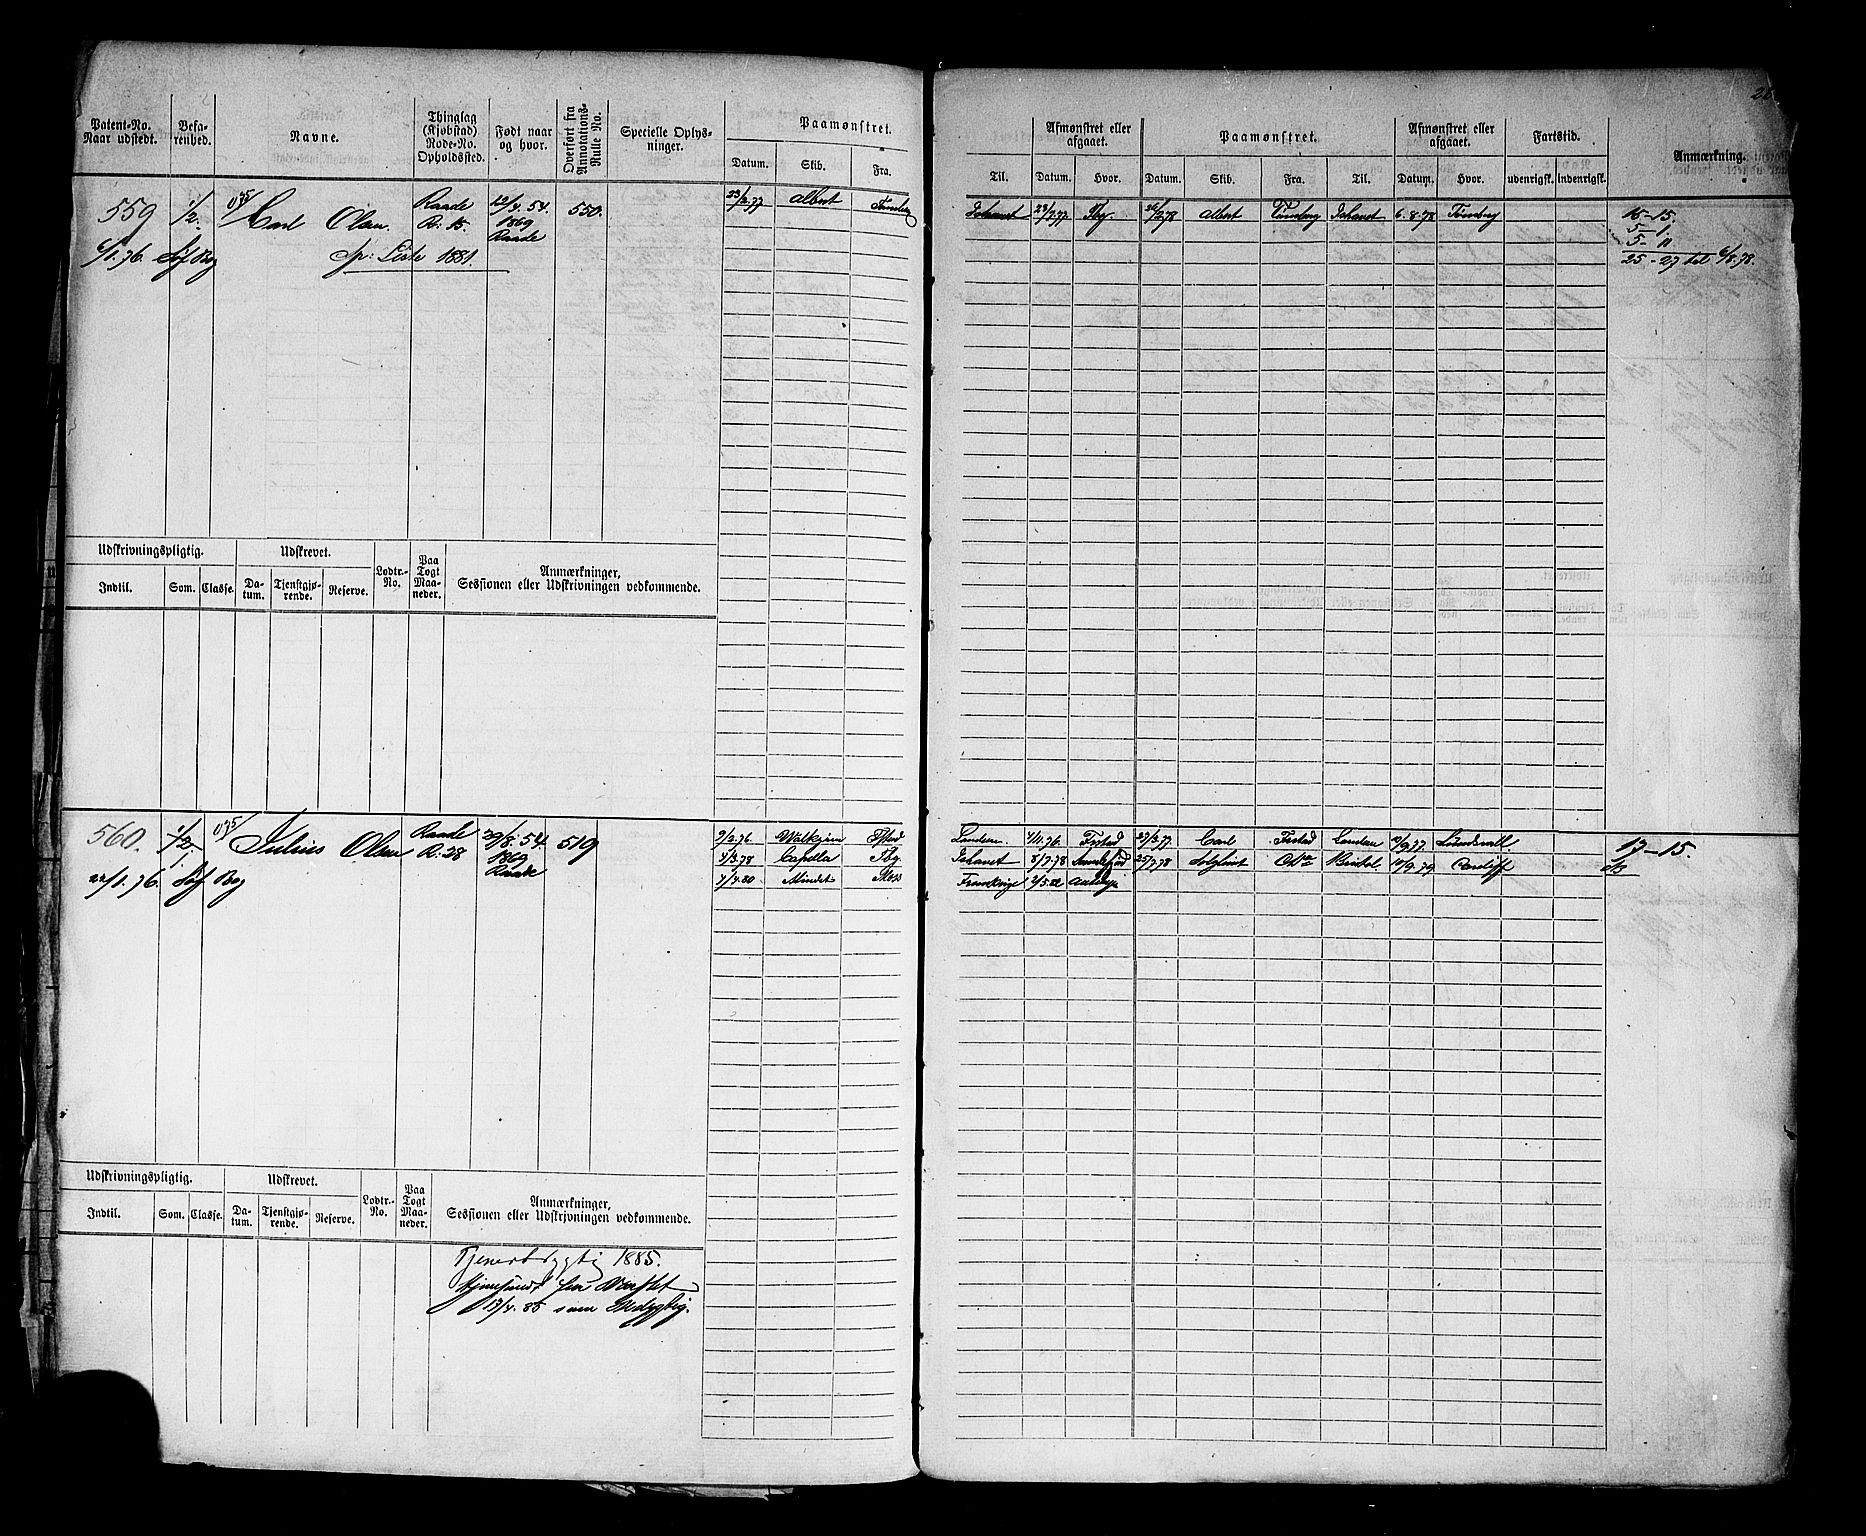 26
Patent-No. Naar udstedt.
Befarenhed.
Navne.
Thinglag (Kjøbstad) Rode-No. Opholdssted.
Født naar og hvor.
Overført fra Annotations-Rulle No.
Specielle Oplysninger.
Paamønstret.
Datum. Skib. Fra.
Til.
Afmønstret eller afgaaet.
Datum. Hvor.
Paamønstret.
Datum. Skib. Fra. Til.
Afmønstret eller afgaaet.
Datum. Hvor.
Fartstid.
udenrigsk. Indenrigsk.
Anmærkning.
559 1/2 Carl Olsen Raade 12/4. 54. 550. 23/2.77 Albert Tønsberg
R: 15. 1869
Raade
6/1.76. Sp: Liste 1881.
Ishavet 28/7.77 Tbg 26/2.78 Albert Tønsberg Ishavet 6.8.78 Tønsberg 15-15.
5-1
5-11
25-27 til 6/8.78.
Udskrivningspligtig.
Udskrevet.
Lodtr.-No.
Paa Togt Maaneder.
Anmærkninger, Sessionen eller Udskrivningen vedkommende.
Indtil. Som. Classe. Datum. Tjenstgjørende. Reserve.
560. 1/2 Julius Olsen Raade 29/8. 54. 519 9/2.76 Walkyrien
R: 28 1869 4/3.78 Capella Tbg
Raade
22/1.76. 4/4.80 Mindet Moss
London 4/11.76 Frstad 27/3.77 Carl Frstad London 10/9.77 Sundsvall 17-15.
Ishavet 8/7.78 25/7.78 Bristol 10/9.79 Cardiff
Frankrige
Udskrivningspligtig.
Udskrevet.
Lodtr.-No.
Paa Togt Maaneder.
Anmærkninger, Sessionen eller Udskrivningen vedkommende.
Indtil. Som. Classe. Datum. Tjenstgjørende. Reserve.
1885.
Hjemsendt fra
13/4. 85 som Udygtig.